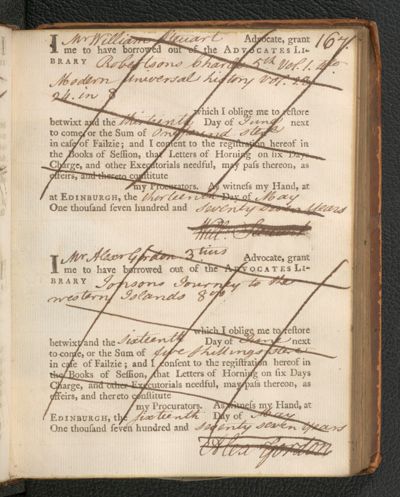 167.
I Mr William Steuart Advocate, grant
me to have borrowed out of the ADVOCATES LI-
BRARY Robertsons Charles 5th Vol. 1. 4to.
Modern universal history Vol. 23
24. in 8
which I oblige me to reſtore
betwixt and the thirteenth Day of June next
to come, or the Sum of One pound ster
in caſe of Failzie; and I conſent to the regiſtration hereof in
the Books of Seſſion, that Letters of Horning on ſix Days
Charge, and other Executorials needful, may paſs thereon, as
effeirs, and thereto conſtitute
my Procurators. As witneſs my Hand, at
at EDINBURGH, the thirteenth Day of May
One thouſand ſeven hundred and seventy seven years
Will. Steuart
I Mr Alexr Gordon 3tius Advocate, grant
me to have borrowed out of the ADVOCATES LI-
BRARY Jonsons Journey to the
western Islands 8vo
which I oblige me to reſtore
betwixt and the sixteenth Day of June next
to come, or the Sum of five shillings ster
in caſe of Failzie; and I conſent to the regiſtration hereof in
the Books of Seſſion, that Letters of Horning on ſix Days
Charge, and other Executorials needful, may paſs thereon, as
effeirs, and thereto conſtitute
my Procurators. As witneſs my Hand, at
EDINBURGH, the sixteenth Day of May
One thouſand ſeven hundred and seventy seven years
Alexr Gordon